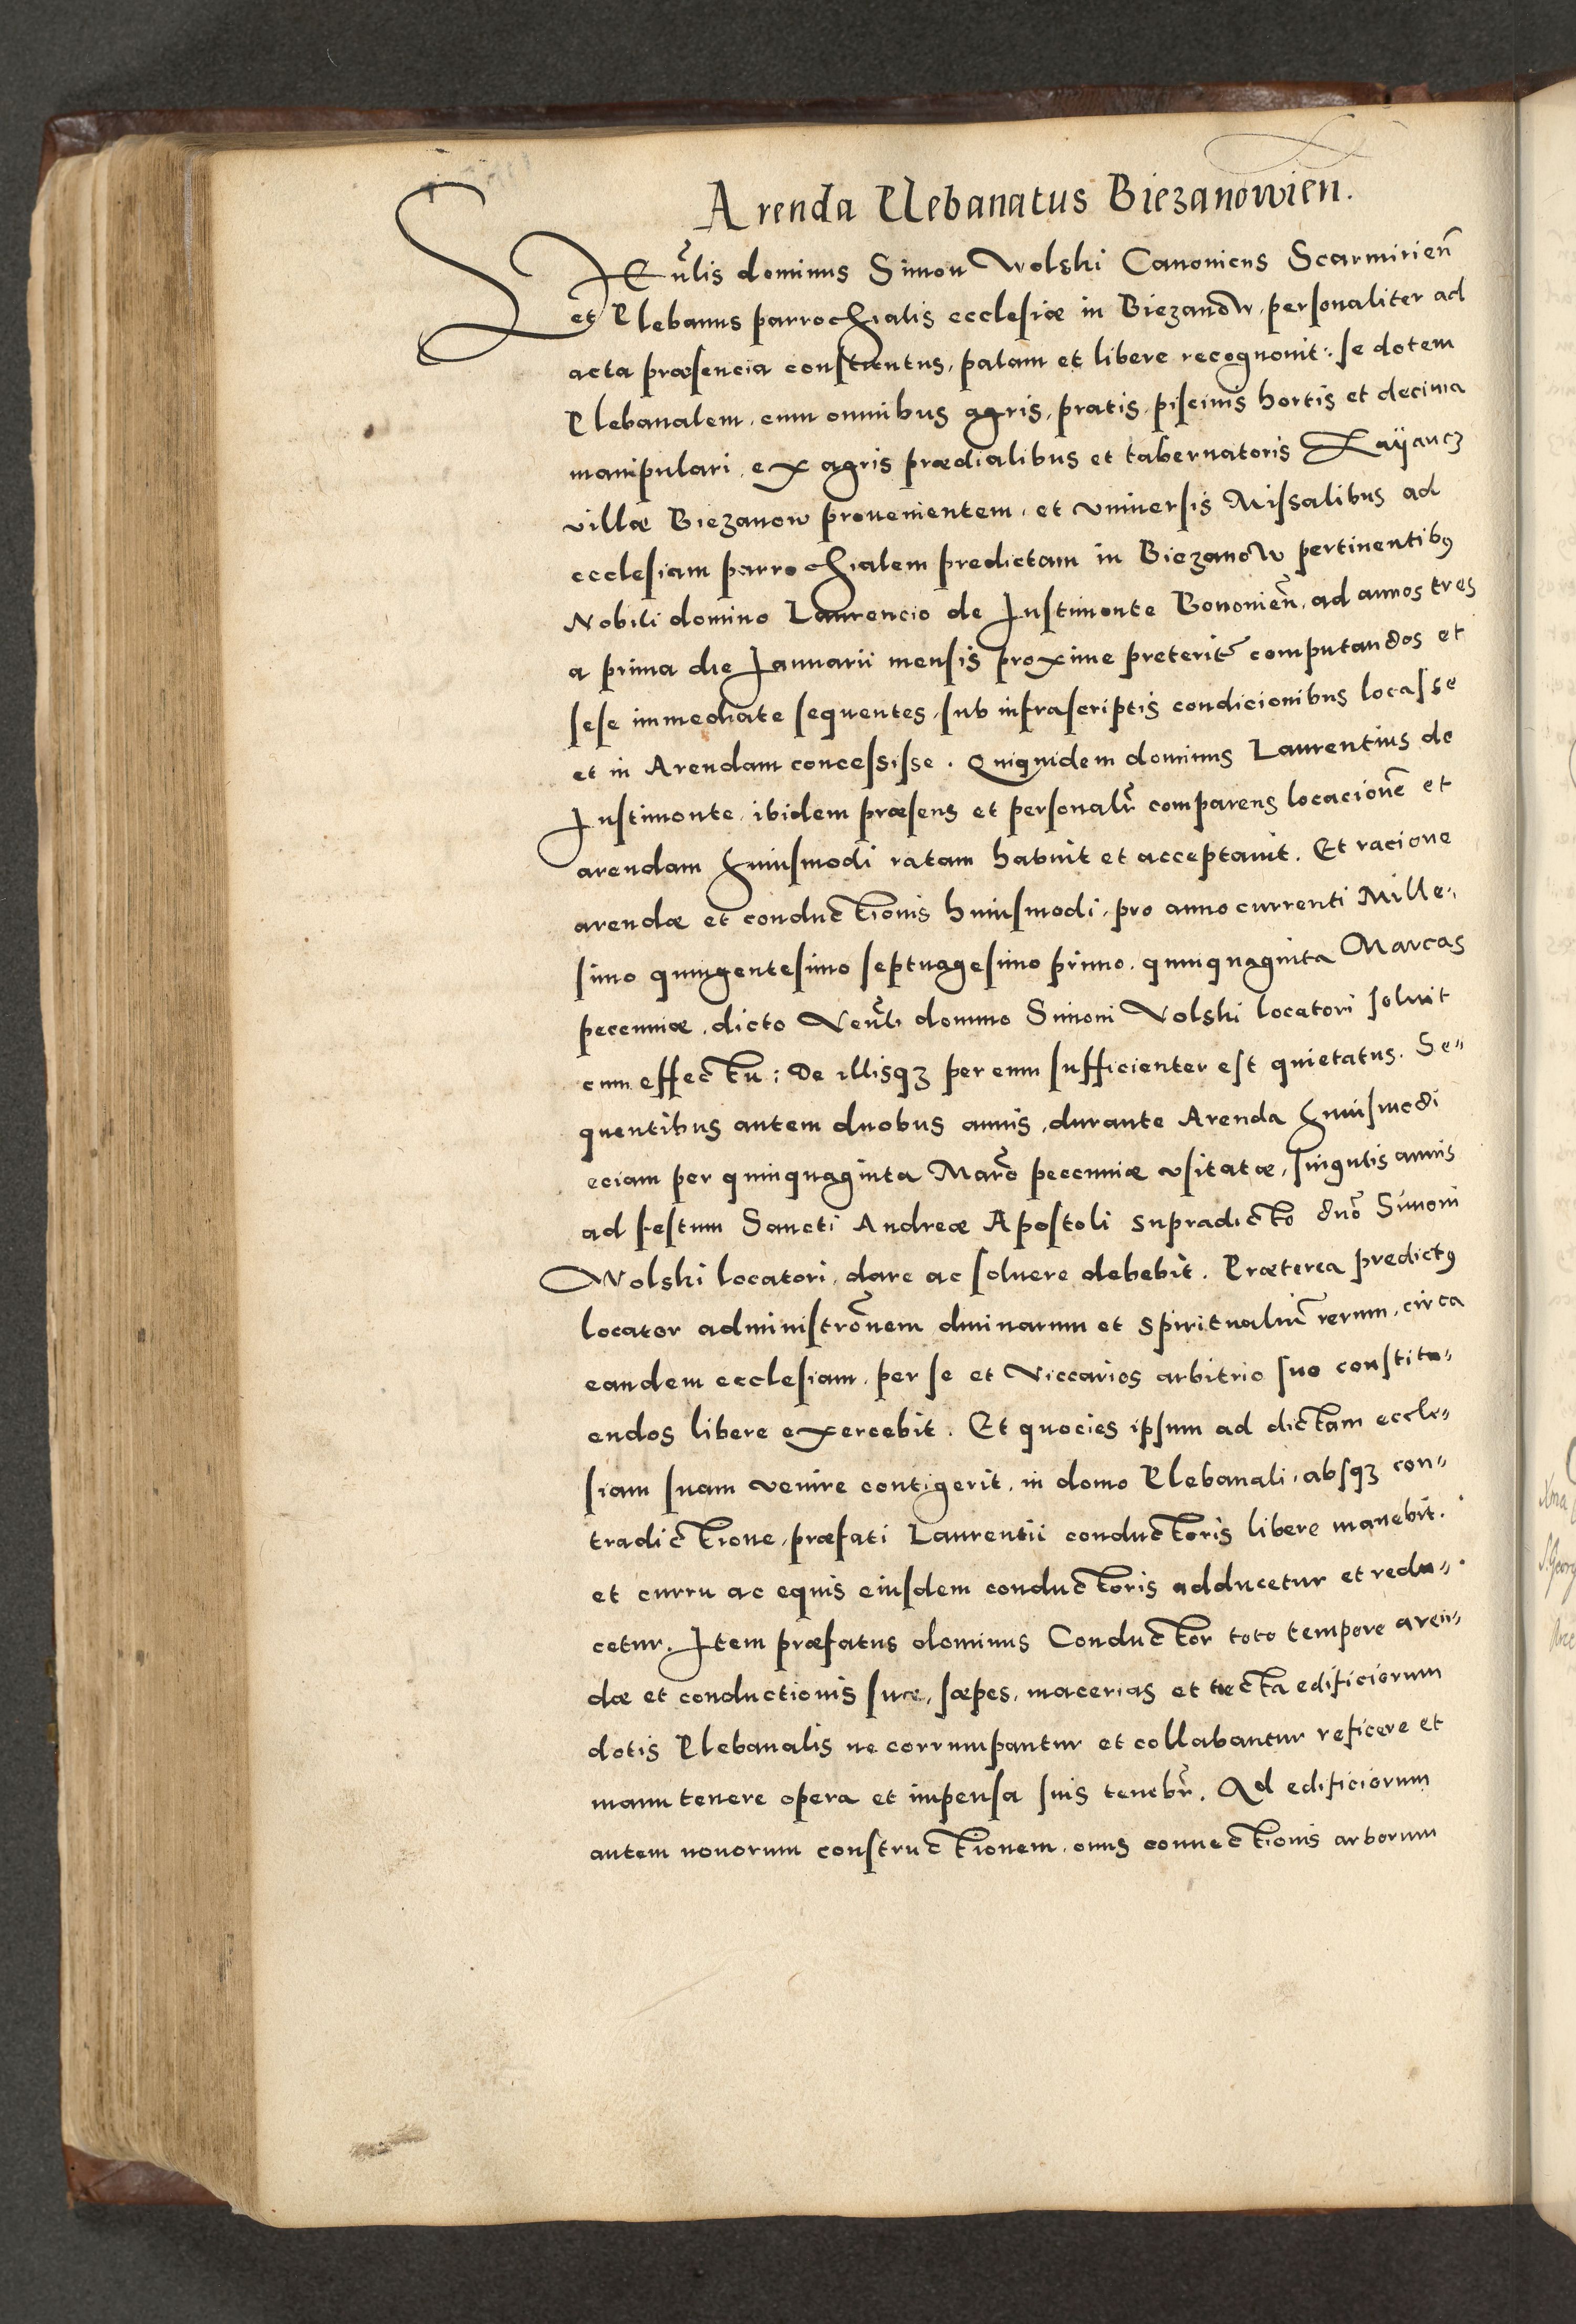 Arenda Plebanatus Biezanowien.
VEn͂lis dominus Simon Wolski Canonicus Scarmirien͂
et Plebanus parrochialis ecclesiæ in Biezanow, personaliter ad
acta præsencia constitutus, palam et libere recognouit: se dotem
Plebanalem, cum omnibus agris, pratis, piscinis hortis et decima
manipulari, ex agris prædialibus et tabernatoris
villæ Biezanow prouenientem, et vniuersis Missalibus ad
ecclesiam parrochialem predictam in Biezanow pertinentibꝯ
Nobili domino Laurencio de Justimonte Bononien͂, ad annos tres
a prima die Januarii mensis proxime preterit͂ computandos et
sese immediate sequentes, sub infrascriptis condicionibus locasse
et in Arendam concessisse. Quiquidem dominus Laurentius de
Justimonte, ibidem præsens et personalr͂ comparens locacionē et
arendam huiusmodi ratam habuit et acceptauit. Et racione
arendæ et conductionis huiusmodi, pro anno currenti Mille-
simo quingentesimo septuagesimo primo, quinquaginta Marcas
pecuniæ, dicto Ven͂li domino Simoni Volski locatori soluit
cum effectu: De illisqꝫ per eum sufficienter est quietatus. Se-
quentibus autem duobus annis, durante Arenda huiusmodi
eciam per quinquaginta Marc͂ pecuniæ vsitatæ, singulis annis
ad festum Sancti Andreæ Apostoli supradicto dn͂o Simoni
Wolski locatori, dare ac soluere debebit. Præterea predictꝯ
locator administro͂nem diuinarum et spiritualiū rerum, circa
eandem ecclesiam, per se et Viccarios arbitrio suo constitu-
endos libere exercebit. Et quocies ipsum ad dictam eccle-
siam suam venire contigerit, in domo Plebanali, absqꝫ con-
tradictione, præfati Laurentii conductoris libere manebit.
et curru ac equis eiusdem conductoris adducetur et redu-
cetur. Item præfatus dominus Conductor toto tempore aren-
dæ et conductionis suæ, sæpes, macerias et tecta edificiorum
dotis Plebanalis ne corrumpantur et collabantur reficere et
manutenere opera et impensa suis tenebr͂. Ad edificiorum
autem nouorum constructionem, onus conuectionis arborum